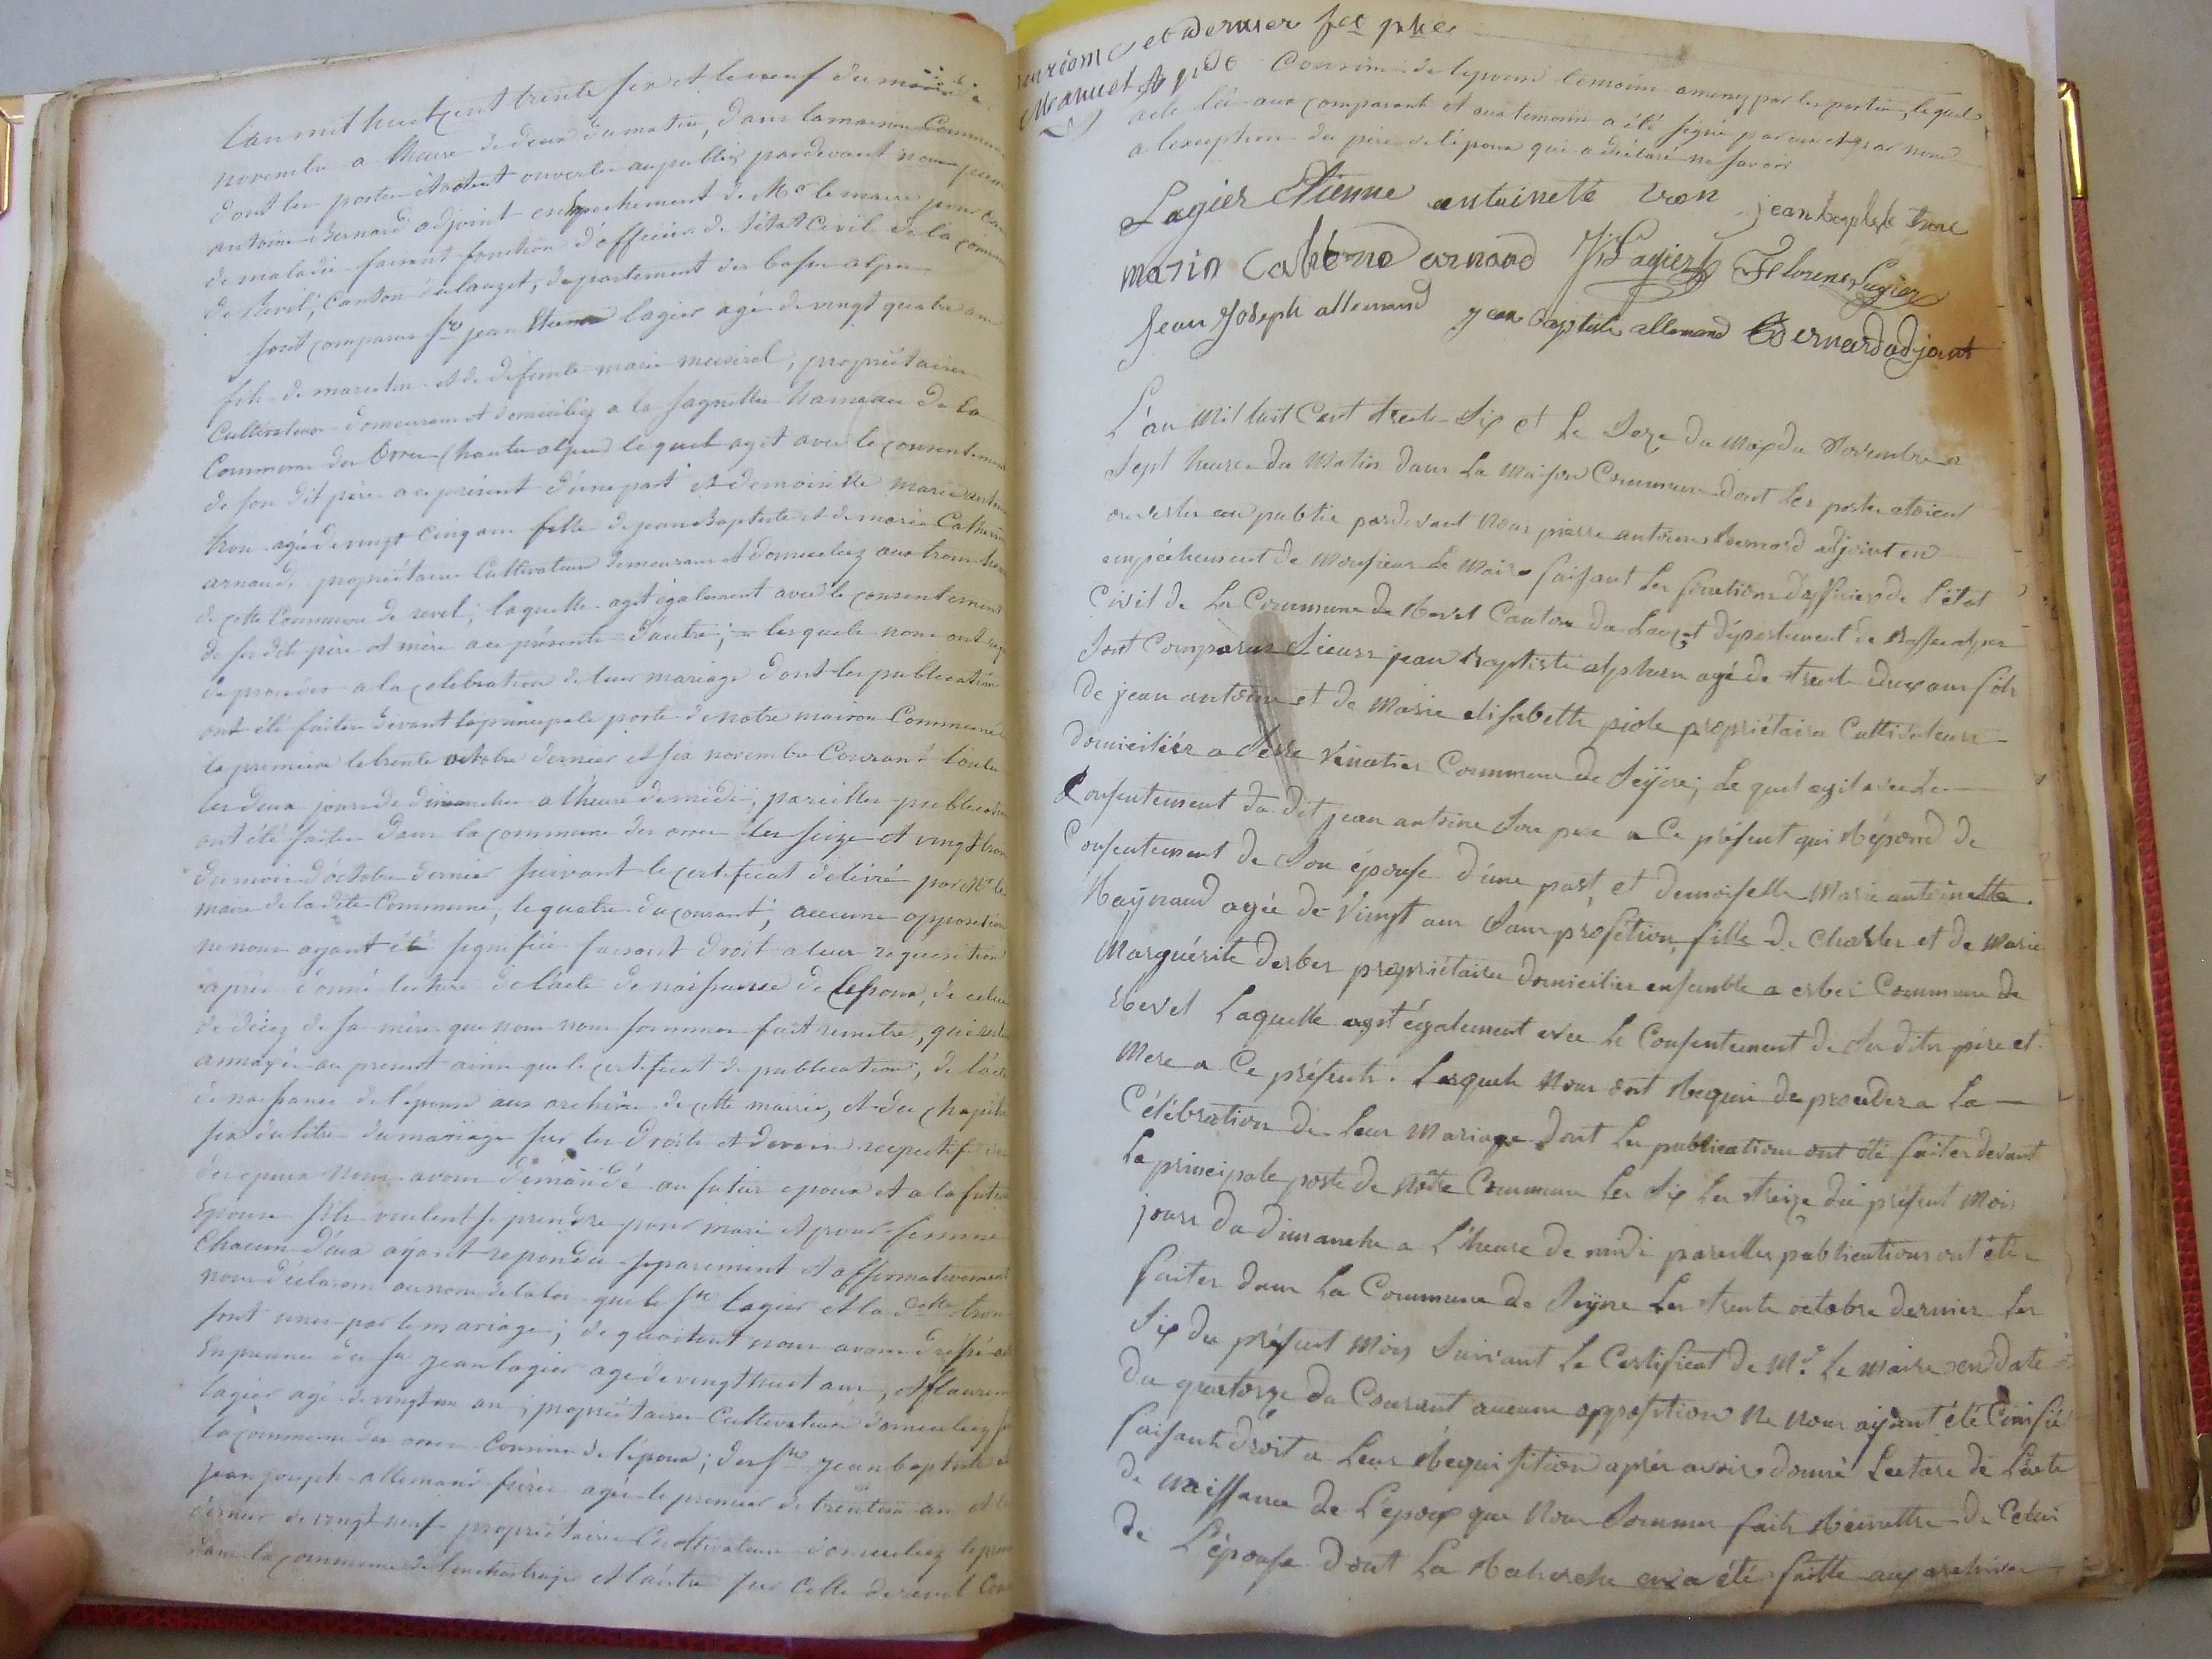 L'an mil huit cent trente six et le neuf du mois de
novembre a lheure de deux du matin, dans la maison Commune
dont les portes étaient ouvertes au public pardevant nous pierre
antoine Bernard adjoint en empechement de Mr le maire pour cause
de maladie faisant fonction d'officier de l'état Civil de la commune
de Revel, Canton du lauzet, département des basses alpes
sont comparus sr jean Etienne lagier agé de vingt quatre ans
fils de marcelin et de défunte marie meissirel, propriétaires
Cultivateurs demeurant et domiciliez a la sagnette hameau de la
Commune des Orres (hautes alpes) lequel agit avec le consentement
de son dit père a ce présent d'une part et demoiselle marie antoinette
tron agée de vingt cinq ans fille de jean Baptiste et de marie Catherine
arnaud, propriétaires Cultivateurs demeurans et domiciliez aux trons hameau
de cette Commune de revel, laquelle agit également avec le consentement
de ses dits père et mère a ce présents d'autre; lesquels nous ont requis
de procéder a la celebration de leur mariage dont les publications
ont été faites devant la principale porte de notre maison Commune
la premiere le trente octobre dernier et six novembre Courant toutes
les deux jours de dimanches a l'heure de midi; pareilles publications
ont été faites dans la commune des orres les seize et vingt trois
du mois d'octobre dernier suivant le certificat délivré par Mr le
maire de la dite Commune, le quatre du courant; aucune opposition
ne nous ayant été signifiée faisant droit a leur requisition
après donné lecture de l'acte de naissance de Lepoux, de celui
de décez de sa mère que nous nous sommes fait remettre, qui reste
annexés au present ainsi que le certificat de publication, de l'acte
de naissance de l'épouse aux archives de cette mairie, et du chapitre
six du titre du mariage sur les droits et devoirs respectifs
des epoux nous avons demandé au futur epoux et a la future
Epouse s'ils veulent se prendre pour mari et pour femme
Chacun d'eux ayant repondu separement et affirmativement
nous déclarons au nom de la loi que le sr lagier et la delle tron
sont unis par le mariage; de quoi tout nous avons dressé acte
En presence des srs jean lagier agé de vingt huit ans, et flaurent
lagier agé de vingt un an, propriétaires Cultivateurs domiciliez
la commune des orres Cousins de l'époux; des srs jean baptiste et
jean joseph allemand frères agés le premier de trente un an et le
dernier de vingt neuf propriétaires Cultivateurs domiciliez le premier
dans la commune de l'enchastraye et l'autre sur celle de revel Cousins
et dernier
Cousins de lepouse temoins amenez par les parties, lequel
acte lû aux comparants et aux temoins a été signé par eux et par nous
a l'exception du père de l'époux qui a déclaré ne savoir
Lagier Etienne antoinete tron jean baptiste trone
marin Catérine arnaud J Lagier Florent Lagier
Jean Joseph allemand jean baptiste allemand Bernard adjoint
L'an mil huit Cent trente Six et Le Seze du Mois du Novembre a
Sept heures du Matin dans La Maison Commune dont Les portes etoient
ouvertes au public pardevant Nous pierre antoine Bernard adjoint en
empéchement de Monsieur Le Maire faisant Les fonctions d'officier de L'état
Civil de La Commune de Revel Canton du Lauzet Département de Basses alpes
Sont Comparus Sieurs jean Baptiste alphan agé de trente deux ans fils
de jean antoine et de Marie elisabeth piole propriétaires Cultivateurs
domiciliés a Serre Vinatier Commune de Seyne; Le quel agit avec Le
Consentement du dit jean antoine Son pere a Ce présent qui Répond de
Consentement de Son épouse d'une part, et demoiselle Marie antoinette
Raynaud agée de Vingt ans Sans profetion, fille de Charles et de Marie
Marguérite Derbes propriétaires domiciliés ensemble a Commune de
Revel Laquelle agit également avec Le Consentement de Ses dits père et
Mere a Ce présents. Lesquels Nous ont Requi de procéder a La
Célébration de Leur Mariage dont Les publications ont été faites devant
La principale porte de Notre Commune Les Six Les treize du présent Mois
jours de dimanche a L'heure de midi pareilles publications ont été
faites dans La Commune de Seyne Les trente octobre dernier Les
Six du présent Mois Suivant Le Certificat de Mr. Le Maire en date
du quatorze du Courant aucune opposition Ne Nous ayant été
faisants droit a Leur Requisition après avoir donné Lecture de L'acte
de Naissance de L'époux que Nous Sommes faits Remettre de Celui
de L'épouse dont La Recherche en a été faitte aux archives